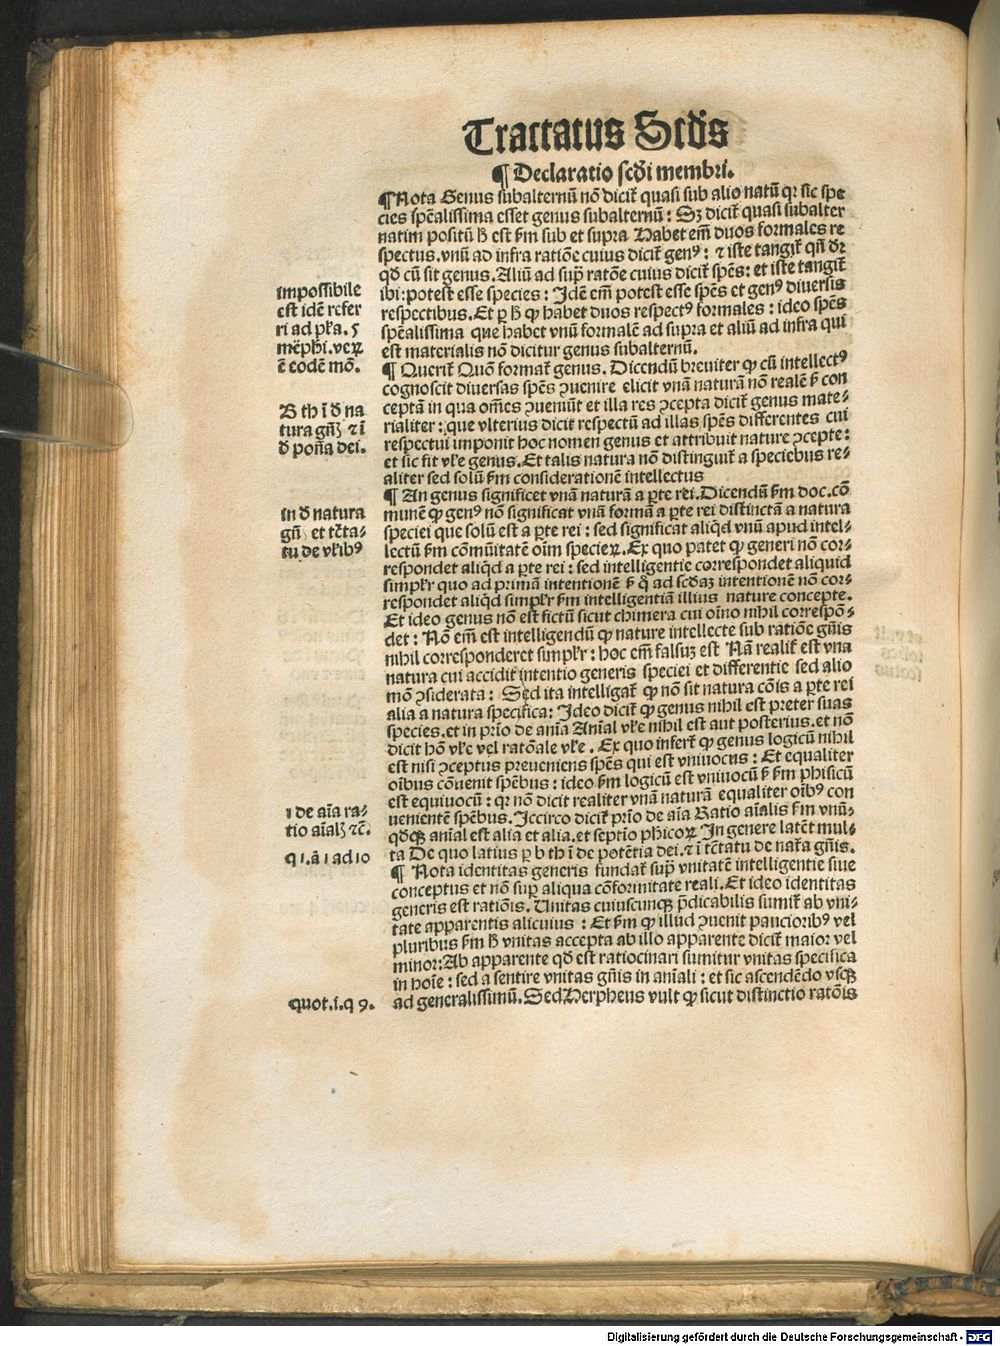 Tractatus Scd̄s
¶ Declaratio scd̄i membri.
¶ Nota Genus subalternū nō dicit᷑ quasi sub alio natū qꝛ sic spe
cies spēalissima esset genus subalternū : Sꝫ dicit᷑ quasi subalter
natim positū ꝧ est ẜm sub et supra Habet em̄ duos formales re
spectus. vnū ad infra ratiōe cuius dicit᷑ genꝰ : ⁊ iste tangit᷑ qn̄ dr̄
qd̄ cū sit genus. Aliū ad sup̄ ratōe cuius dicit᷑ spēs: et iste tangit᷑
ibi: potest esse species : Idē em̄ potest esse spēs et genꝰ diuersis
respectibus. Et ꝑ ꝧ ꝙ habet duos respectꝰ formales : ideo spēs
spēalissima que habet vnū formalē ad supra et aliū ad infra qui
est materialis nō dicitur genus subalternū.
impossibile
est idē refer
ri ad pl̄a. 5
mēph̄i. veꝝ
ē eodē mō.
¶ Querit᷑ Quō format᷑ genus. Dicendū breuiter ꝙ cū intellectꝰ
cognoscit diuersas spēs ꝯuenire elicit vnā naturā nō realē ẜ con
ceptā in qua om̄es ꝯueniūt et illa res ꝯcepta dicit᷑ genus mate⸗
rialiter : que vlterius dicit respectū ad illas spēs differentes cui
respectui imponit hoc nomen genus et attribuit nature ꝯcepte :
et sic fit vl̄e genus. Et talis natura nō distinguit᷑ a speciebus re⸗
aliter sed solū ẜm considerationē intellectus
ꝧ th ī ð na
tura gn̄ꝫ ⁊ ī
ð pōna dei.
¶ An genus significet vnā naturā a ꝑte rei. Dicendū ẜm doc. cō
munē ꝙ genꝰ nō significat vnā formā a ꝑte rei distinctā a natura
speciei que solū est a ꝑte rei : sed significat aliqd̄ vnū apud intel⸗
lectū ẜm cōmūitatē oīm specieꝝ. Ex quo patet ꝙ generi nō cor⸗
respondet aliqd̄ a ꝑte rei : sed intelligentie correspondet aliquid
simpl̄r quo ad primā intentionē ẜ q̄ ad scd̄aꝫ intentionē nō cor⸗
respondet aliqd̄ simpl̄r ẜm intelligentiā illius nature concepte.
in ð natura
gn̄ et tc̄ta⸗
tu de vl̄ibꝰ
Et ideo genus nō est fictū sicut chimera cui oīno nihil correspō⸗
det : Nō em̄ est intelligendū ꝙ nature intellecte sub ratiōe gn̄is
nihil corresponderet simpl̄r : hoc em̄ falsuꝫ est Nā realit᷑ est vna
natura cui accidit intentio generis speciei et differentie sed alio
mō ꝯsiderata : Sed ita intelligat᷑ ꝙ nō sit natura cōis a ꝑte rei
alia a natura specifica : Ideo dicit᷑ ꝙ genus nihil est preter suas
species. et in pr̄io de anīa Anīal vl̄e nihil est aut posterius. et nō
dicit hō vl̄e vel ratōnale vl̄e . Ex quo infert᷑ ꝙ genus logicū nihil
est nisi ꝯceptus preueniens spēs qui est vniuocus : Et equaliter
oībus cōuenit spēbus : ideo ẜm logicū est vniuocū ẜ ẜm phisicū
est equiuocū : qꝛ nō dicit realiter vnā naturā equaliter oībꝰ con
uenientē spēbus. Iccirco dicit᷑ pr̄io de aīa Ratio aīalis ẜm vnū⸗
qd̄qꝫ anīal est alia et alia. et septīo ph̄icoꝝ In genere latēt mul⸗
ta De quo latius ꝑ b th ī de potētia dei. ⁊ ī tc̄tatu de nat᷑a gn̄is.
1 de aīa ra⸗
tio aīalꝫ ⁊c̄.
q 1. ā 1 ad 10
¶ Nota identitas generis fundat᷑ sup̄ vnitatē intelligentie siue
conceptus et nō sup̄ aliqua cōformitate reali. Et ideo identitas
generis est ratiōis. Unitas cuiuscunqꝫ p̄dicabilis sumit᷑ ab vni⸗
tate apparentis alicuius : Et ẜm ꝙ illud ꝯuenit paucioribꝰ vel
pluribus ẜm ꝧ vnitas accepta ab illo apparente dicit᷑ maior vel
minor: Ab apparente qd̄ est ratiocinari sumitur vnitas specifica
in hoīe : sed a sentire vnitas gn̄is in anīali : et sic ascendēdo vsqꝫ
ad generalissimū. Sed Herpheus vult ꝙ sicut distinctio ratōis
quot. 1. q 9.
Digitalisierung gefördert durch die Deutsche Forschungsgemeinschaft - DFG